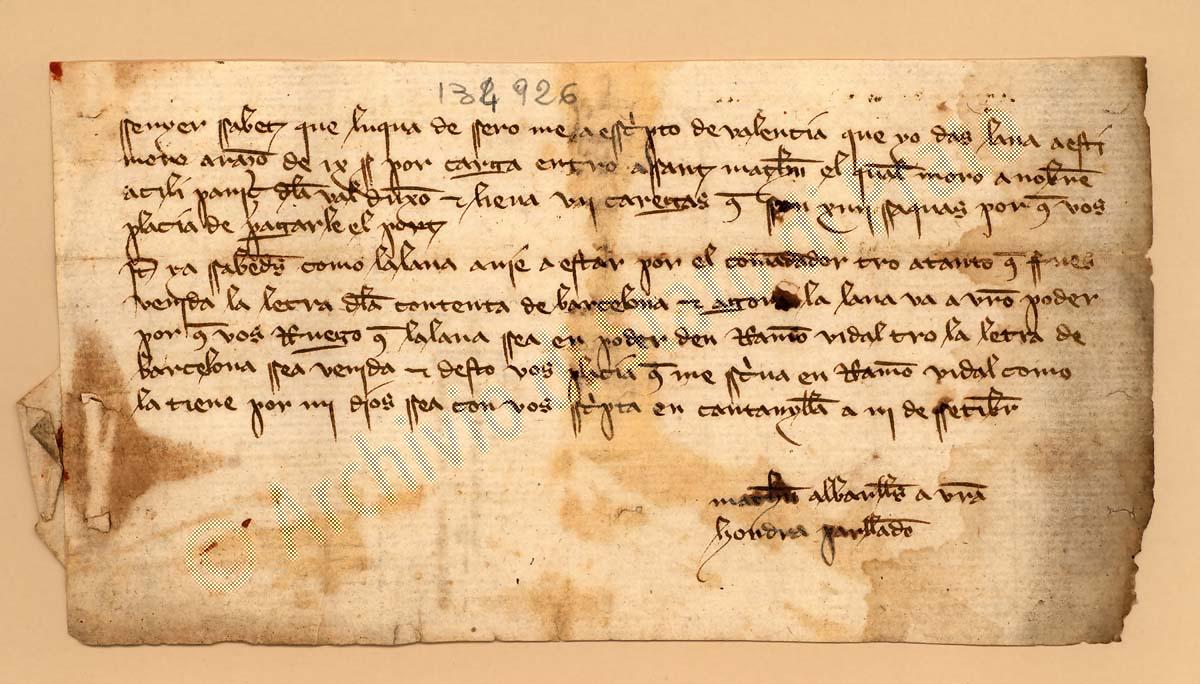 134926
ssenyer sabet que luqua de sero me a escripto de valencia que yo das lana a esti
moro a rayo de ix ss por carga entro a sant matheu el qual moro a nobre
acili de la val duxo e lieva vii caregas q son xiiii saquas por q vos
placia de pagarle el port
It ra como la lana avie a estar por el tro atanto q fues
venida la letra dla contenta de barcelona e agora la lana va a vro poder
por q vos Ruego q la lana sea en poder den Ramo vidal tro la letra de
barcelona ssea venida e desto vos placia q me scriva en Ramo vidal como
la tiene por mi dios ssea con vos scripta en cantavylla a iii de setebr
a vra
hondra
© Archivio di Stato di Prato